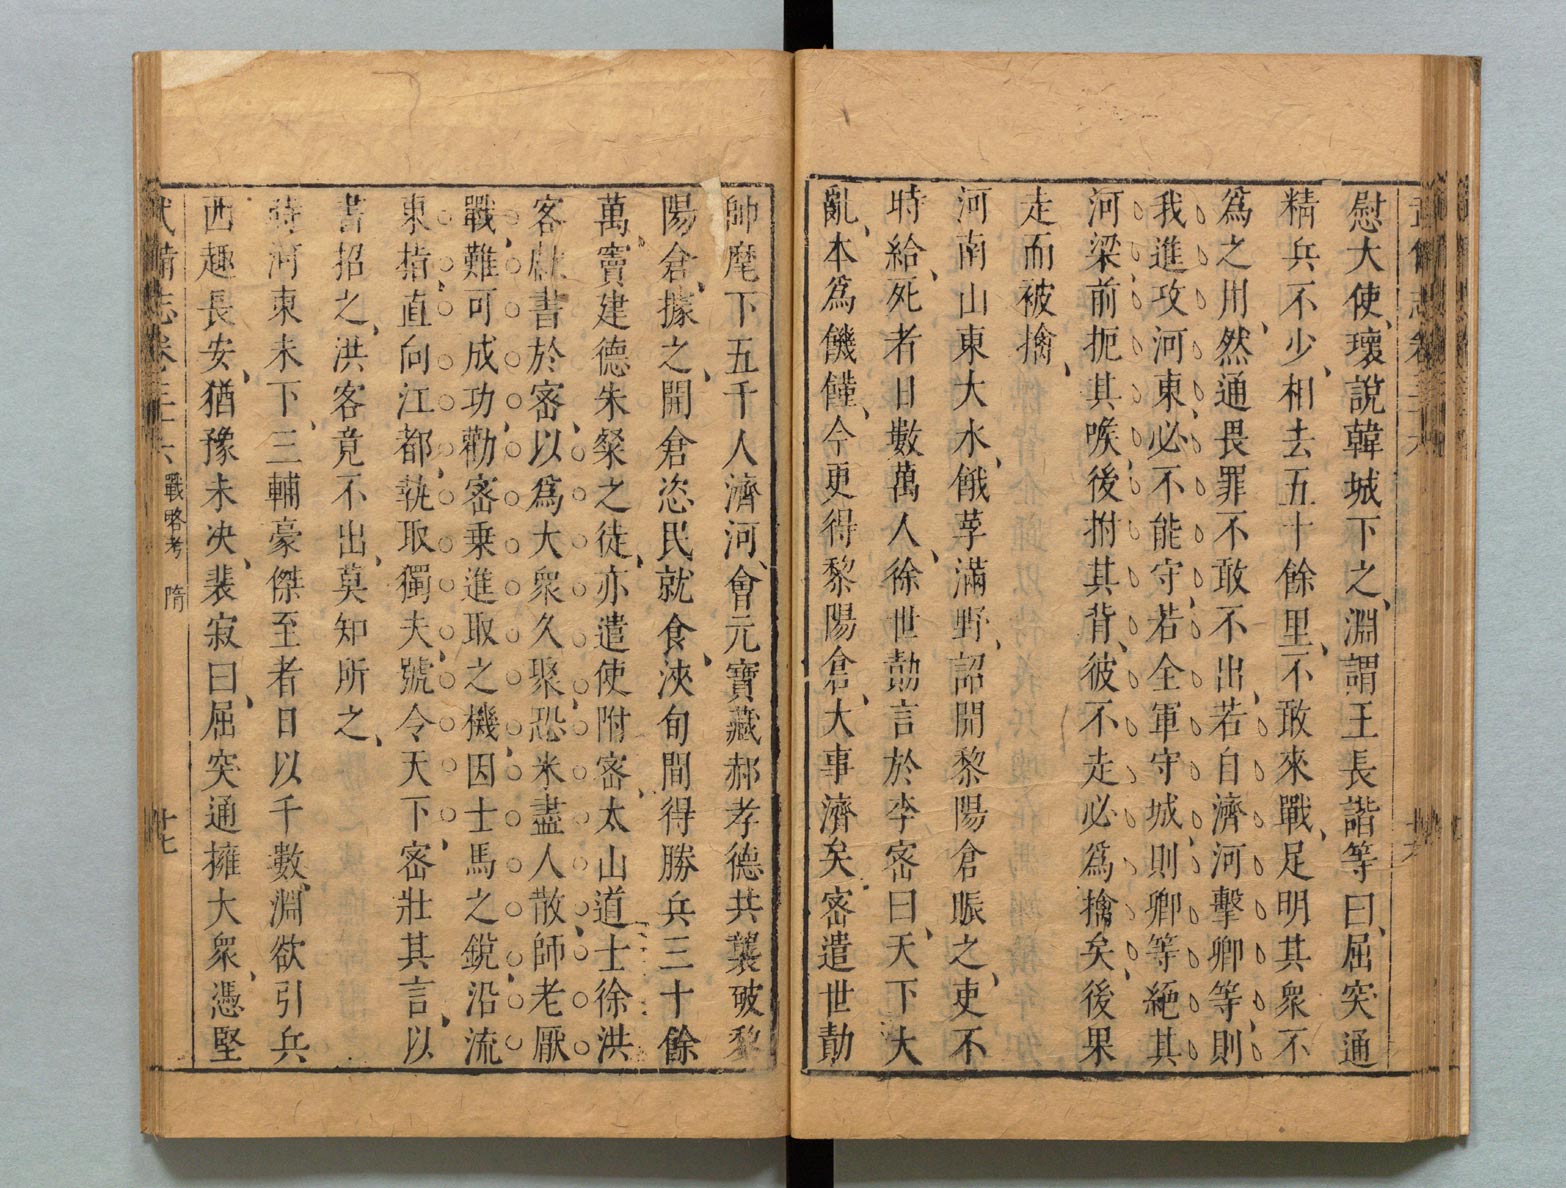 慰大使壞說韓城下之淵謂王長諧等曰屈突通
精兵不少相去五十餘里不敢來戰足明其衆不
爲之用然通畏罪不敢不出若自濟河擊卿等則
我進攻河東必不能守若全軍守城則卿等絕其
河梁前扼其喉後拊其背彼不走必爲擒矣後果
走而被擒
河南山東大水餓莩滿野詔開黎陽倉賑之吏不
時給死者日數萬人徐世勣言於李密曰天下大
亂本爲饑饉今更得黎陽倉大事濟矣密遣世勣
帥麾下五千人濟河會元寶藏郝孝德共襲破黎
陽倉據之開倉恣民就食浹旬間得勝兵三十餘
萬竇建德朱粲之徒亦遣使附密太山道士徐洪
客獻書於密以爲大衆久聚恐米盡人散師老厭
戰難可成功勸密乗進取之機因士馬之銳沿流
東指直向江都執取獨夫號令天下密壯其言以
書招之洪客竟不出莫知所之
時河東未下三輔豪傑至者日以千數淵欲引兵
西趣長安猶豫未决裴寂曰屈突通擁大衆憑堅
武備志卷二十六 戰略考 隋 十七